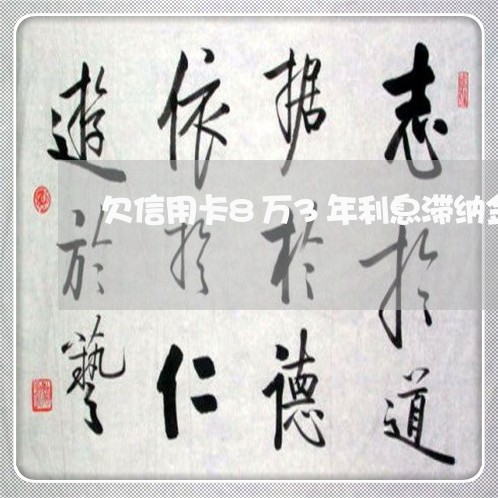 志於道
据於德
依於仁
遊於藝
欠信用卡8万3年利息滞纳金